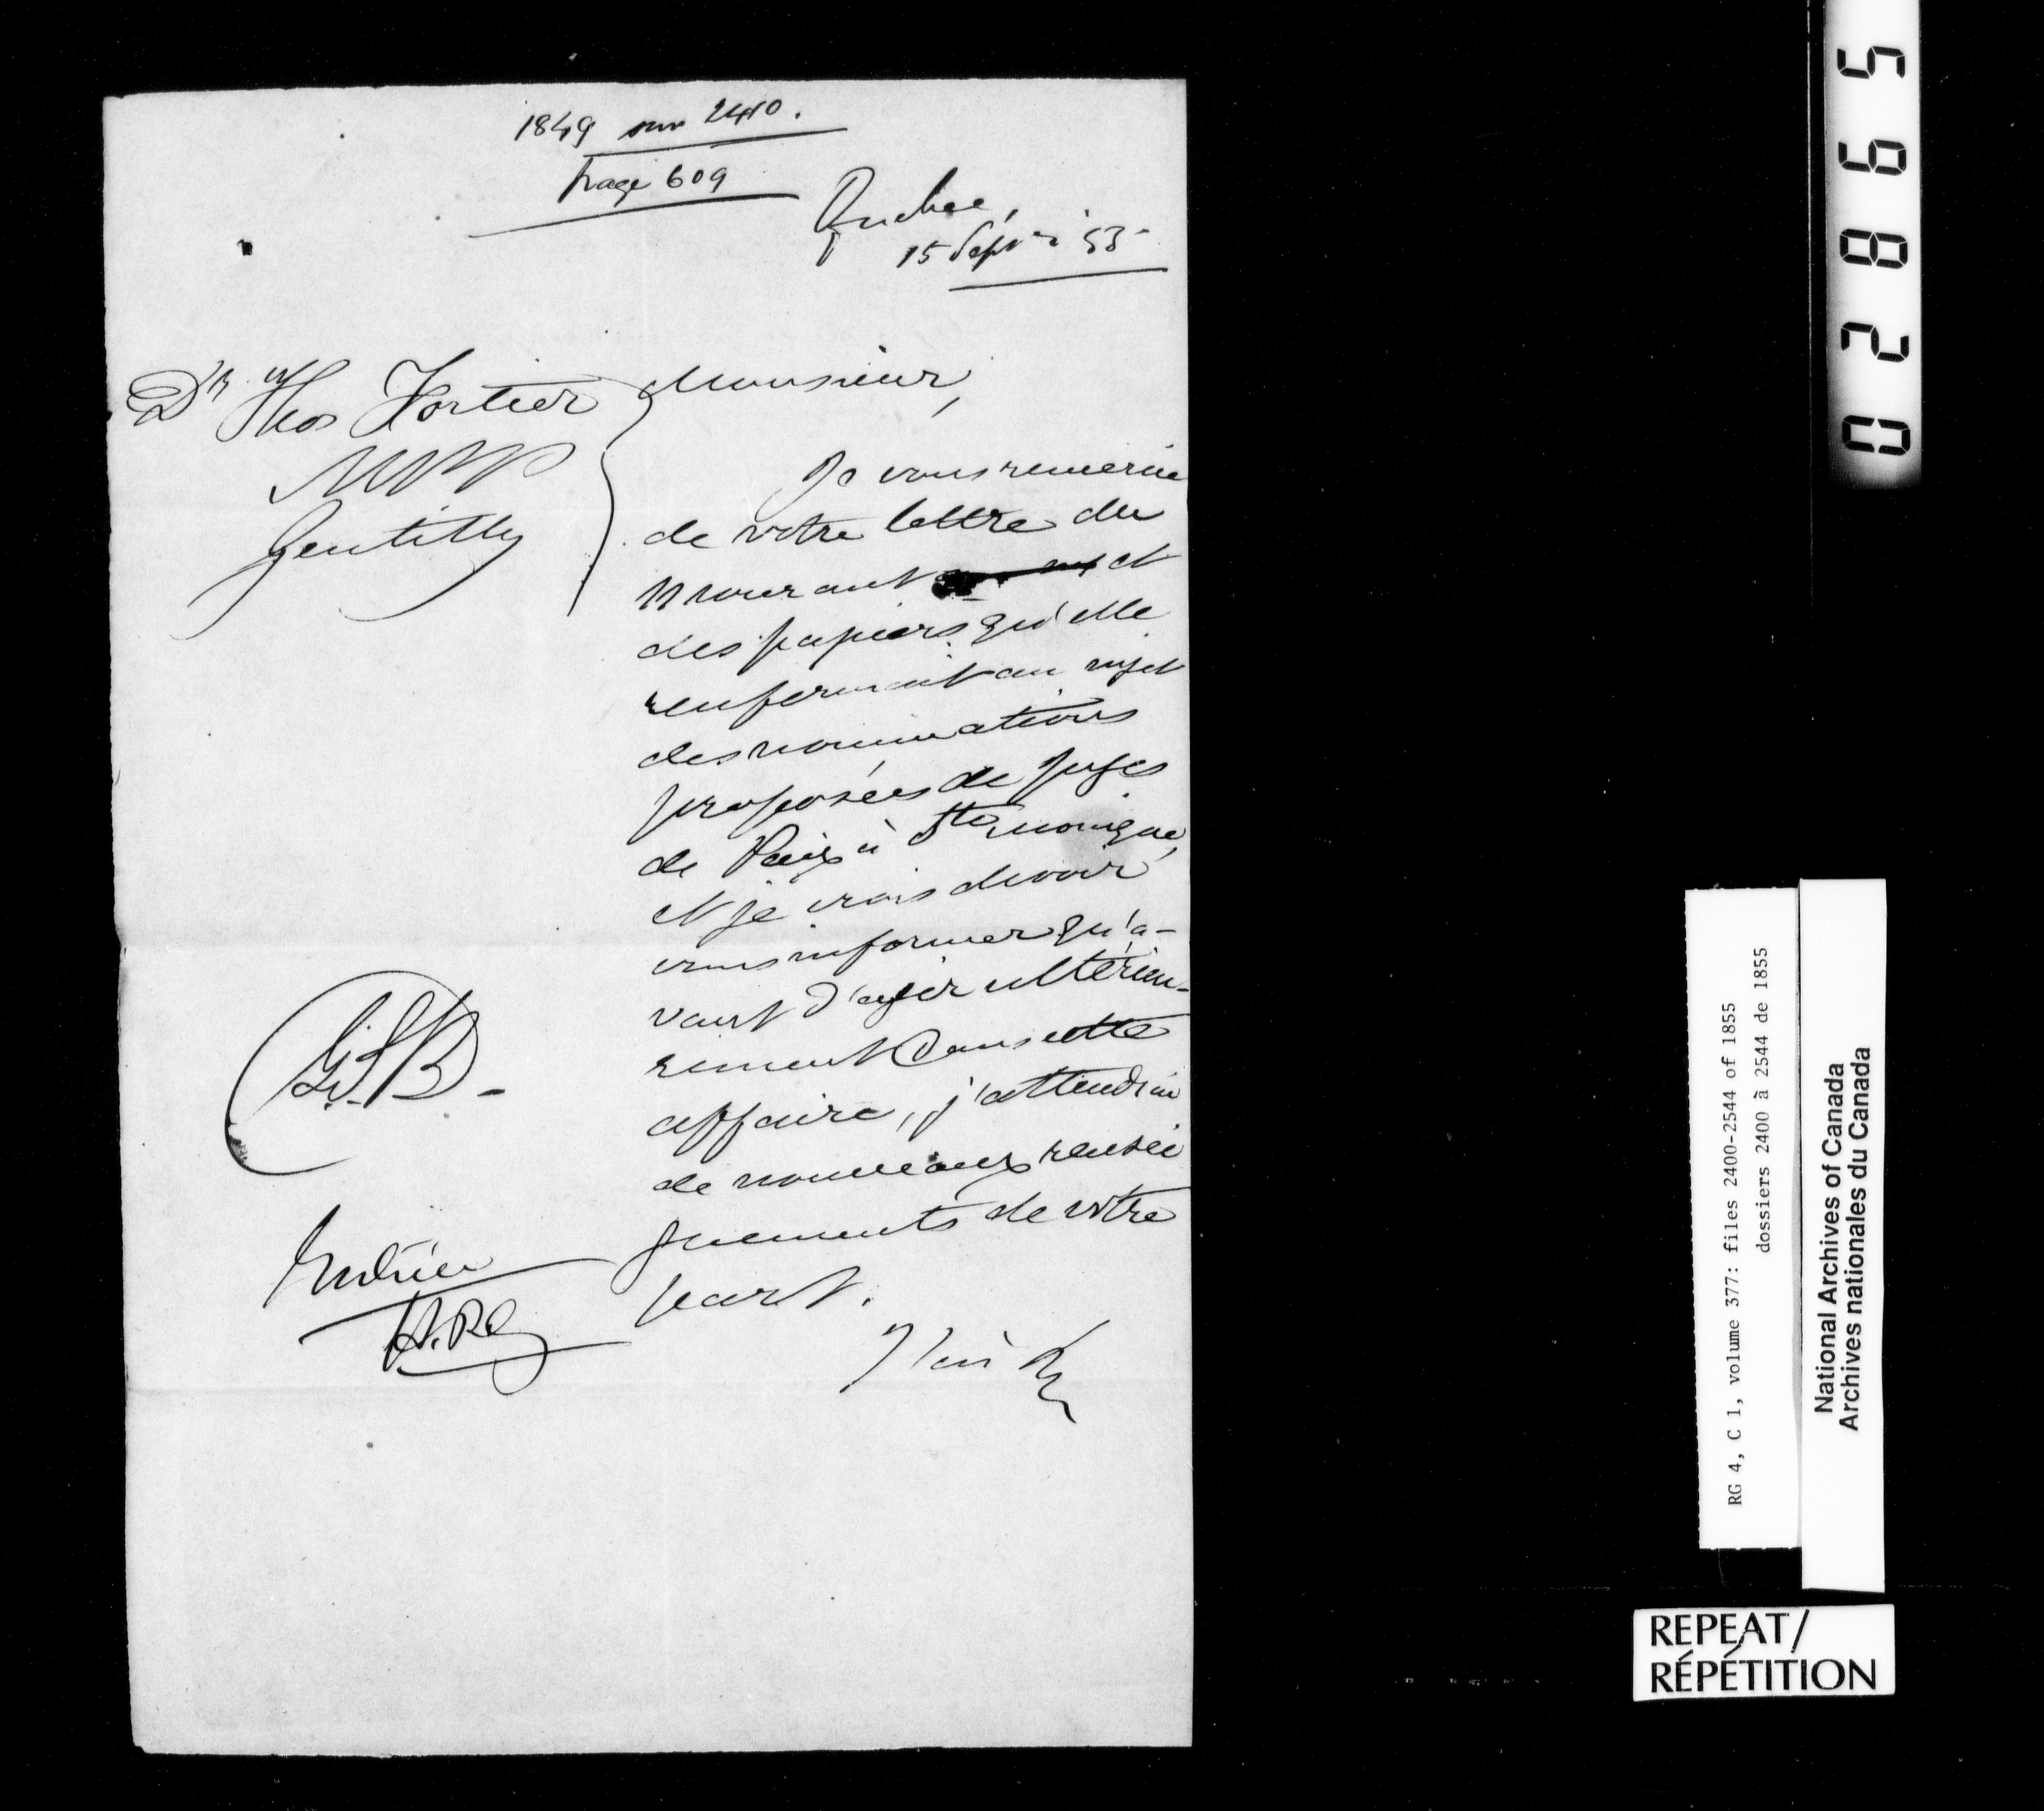 1849 sur 2410.
page 609
Quebec,
15 Septre 53
Dr Thos Fortier
MPP
Gentilly
Monsieur,
Je vous remercie
de votre lettre du
11 courant et
des papiers qu'elle
renfermait au sujet
des nominations
proposées de Juges
de Paix à Ste monique,
et je crois devoir
vous informer qu'a-
vant d'agir ultérieu-
rement dans cette
affaire, j'attendrai
de nouveaux rensei
gnements de votre
part.
J'ai &c
Entrée
02865
RG 4, C 1, volume 377: files 2400-2544 of 1855
dossiers 2400 à 2544 de 1855
National Archives of Canada
Archives nationales du Canada
REPEAT/
RÉPÉTITION